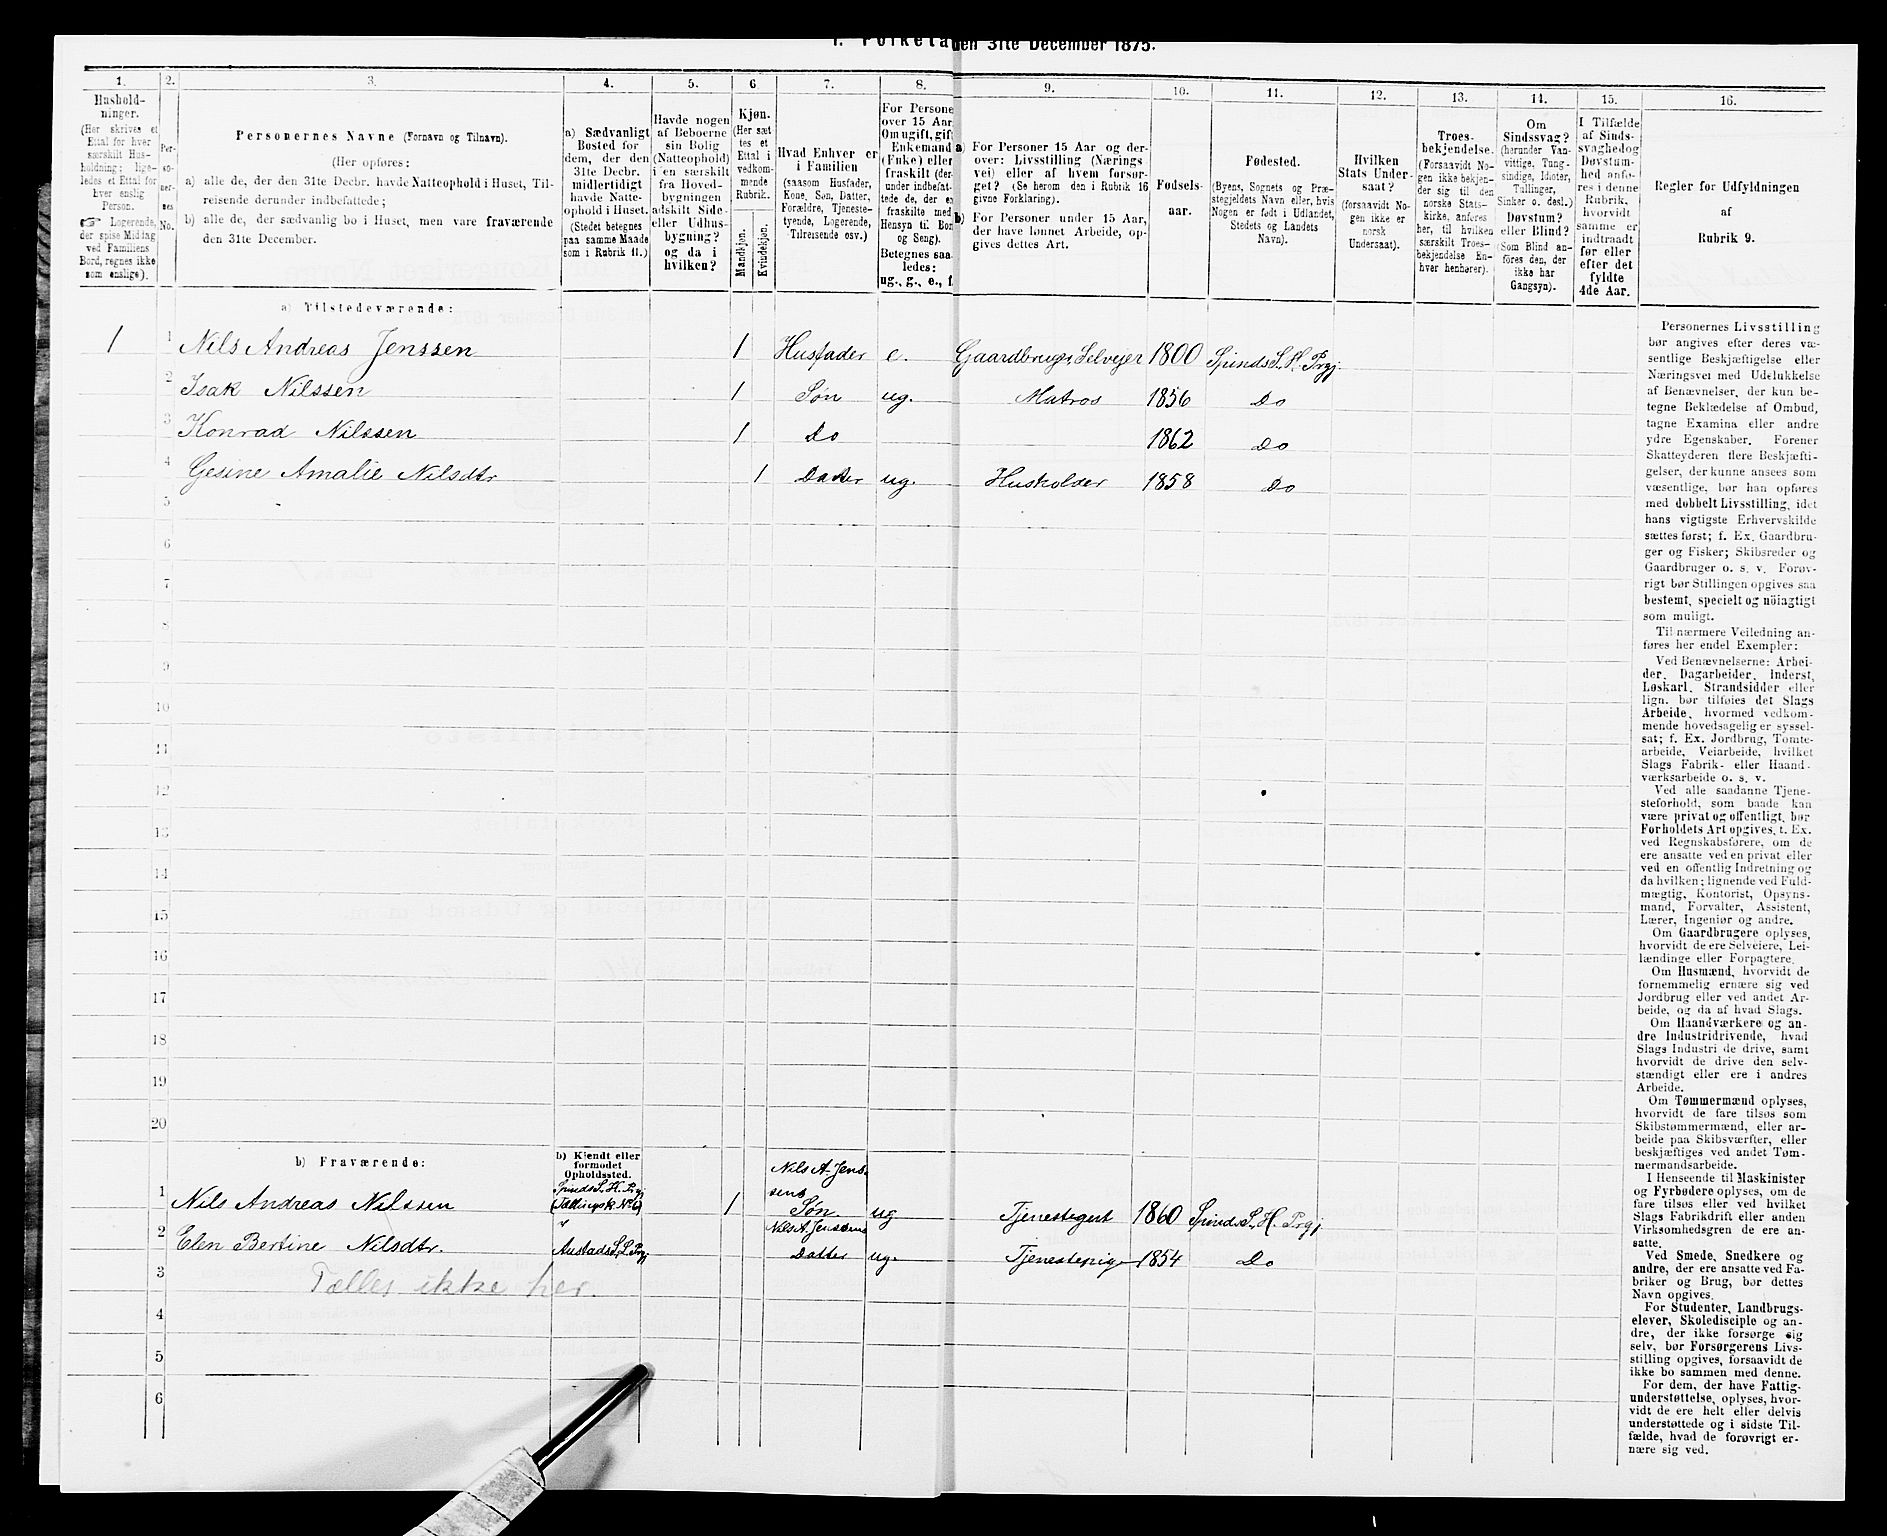 den 31te December 1875.
1. 2. 3. 4. 5. 6. 7. 8. 9. 10. 11. 12. 13. 14. 15. 16.
Hushold-
ninger.
(Her skrives et
Ettal for hver
særskilt Hus-
holdning; lige-
ledes et Ettal for
hver enslig
Person.
☞ Logerende,
der spise Middag
ved Familiens
Bord, regnes ikke
som enslige).
Per-
so-
ner-
nes
No.
Personernes Navne (Fornavn og Tilnavn).
(Her opføres:
a) alle de, der den 31te Decbr. havde Natteophold i Huset, Til-
reisende derunder indbefattede;
b) alle de, der sædvanlig bo i Huset, men vare fraværende
den 31te December.
a) Sædvanligt
Bosted for
dem, der den
31te Decbr.
midlertidigt
havde Natte-
ophold i Huset.
(Stedet betegnes
paa samme Maade
som i Rubrik 11.)
Havde nogen
af Beboerne
sin Bolig
(Natteophold)
i en særskilt
fra Hoved-
bygningen
adskilt Side-
eller Udhus-
bygning?
og da i
hvilken?
Kjøn.
(Her sæt-
tes et
Ettal i
vedkom-
mende
Rubrik.
Mandkjøn.
Kvindekjøn.
Hvad Enhver er
i Familien
(saasom Husfader,
Kone, Søn, Datter,
Forældre, Tjeneste-
tyende, Logerende,
Tilreisende osv.)
For Persone
over 15 Aar
Om ugift, gif
Enkemand
(Enke) eller
fraskilt (der-
under indbefat-
tede de, der e
fraskilte med
Hensyn til Bor
og Seng).
Betegnes saa-
ledes:
ug., g., e., f.
a) For Personer 15 Aar og der-
over: Livsstilling (Nærings
vei) eller af hvem forsør-
get? (Se herom den i Rubrik 16
givne Forklaring).
b) For Personer under 15 Aar,
der have lønnet Arbeide, op-
gives dettes Art.
Fødsels-
aar.
Fødested.
(Byens, Sognets og Præ-
stegjeldets Navn eller, hvis
Nogen er født i Udlandet,
Stedets og Landets
Navn).
Hvilken
Stats Under-
saat?
(forsaavidt No-
gen ikke er
norsk
Undersaat).
Troes-
bekjendelse.
(Forsaavidt No-
gen ikke bekjen-
der sig til den
norske Stats-
kirke, anføres
her, til hvilken
særskilt Troes-
bekjendelse En-
hver henhører).
Om
Sindssvag?
(herunder Van-
vittige, Tung-
sindige, Idioter,
Tullinger,
Sinker o. desl.)
Døvstum?
eller Blind?
(Som Blind an-
føres den, der
ikke har
Gangsyn).
I Tilfælde
af Sinds-
svaghed og
Døvstum-
hed anfø-
res i denne
Rubrik,
hvorvidt
samme er
indtraadt
før eller
efter det
fyldte
4de Aar.
Regler for Udfyldningen
af
Rubrik 9.
a) Tilstedeværende:
1 1 Nils Andreas Jenssen 1 Husfader e. Gaardbruger, Selveier 1800 Spinds S, H. Prgj.
2 Isak Nilssen 1 Søn ug. Matros 1856 Do
3 Konrad Nilssen 1 Do 1862 Do
4 Gesine Amalie Nilsdtr 1 Datter ug. Husholder 1858 Do
5
6
7
8
9
10
11
12
13
14
15
16
17
18
19
20
b) Fraværende:
b) Kjendt eller
formodet
Opholdssted.
1 Nils Andreas Nilssen Spinds S. H. Prgj 1 Nils A. Jens-
sens
Søn ug Tjenestegut 1860 Spinds S, H. Prgj
2 Elen Bertine Nilsdtr. Austads S, L. Prgj Nils A. Jenssens
Datter ug. Tjenestepige 1854 Do
3 Tælles ikke her.
4
5
6
Personernes Livsstilling
bør angives efter deres væ-
sentlige Beskjæftigelse eller
Næringsvei med Udelukkelse
af Benævnelser, der kun be-
tegne Beklædelse af Ombud,
tagne Examina eller andre
ydre Egenskaber. Forener
Skatteyderen flere Beskjæfti-
gelser, der kunne ansees som
væsentlige, bør han opføres
med dobbelt Livsstilling, idet
hans vigtigste Erhvervskilde
sættes først; f. Ex. Gaardbru-
ger og Fisker; Skibsreder og
Gaardbruger o. s. v. Forøv-
rigt bør Stillingen opgives saa
bestemt, specielt og nöiagtigt
som muligt.
Til nærmere Veiledning an-
føres her endel Exempler:
Ved Benævnelserne: Arbei-
der, Dagarbeider, Inderst,
Løskarl, Strandsidder eller
lign. bør tilføies det Slags
Arbeide, hvormed vedkom-
mende hovedsagelig er syssel-
sat; f. Ex. Jordbrug, Tomte-
arbeide, Veiarbeide, hvilket
Slags Fabrik- eller Haand-
værksarbeide o. s. v.
Ved alle saadanne Tjene-
steforhold, som baade kan
være privat og offentligt, bør
Forholdets Art opgives, t. Ex.
ved Regnskabsførere, om de
ere ansatte ved en privat eller
ved en offentlig Indretning og
da hvilken; lignende ved Fuld-
mægtig, Kontorist, Opsyns-
mand, Forvalter, Assistent,
Lærer, Ingeniør og andre.
Om Gaardbrugere oplyses,
hvorvidt de ere Selveiere, Lei-
lændinge eller Forpagtere.
Om Husmænd, hvorvidt de
fornemmelig ernære sig ved
Jordbrug eller ved andet Ar-
beide, og da af hvad Slags.
Om Haandværkere og an-
dre Industridrivende, hvad
Slags Industri de drive, samt
hvorvidt de drive den selv-
stændigt eller ere i andres
Arbeide.
Om Tømmermænd oplyses,
hvorvidt de fare tilsøs som
Skibstømmermænd, eller ar-
beide paa Skibsværfter, eller
beskjæftiges ved andet Tøm-
mermandsarbeide.
I Henseende til Maskinister
og Fyrbødere oplyses, om de
fare tilsøs eller ved hvilket
Slags Fabrikdrift eller anden
Virksomhedsgren de ere an-
satte.
Ved Smede, Snedkere og
andre, der ere ansatte ved Fa-
briker og Brug, bør dettes
Navn opgives.
For Studenter, Landbrugs-
elever, Skoledisciple og an-
dre, der ikke forsørge sig
selv, bør Forsørgerens Livs-
stilling opgives, forsaavidt de
ikke bo sammen med denne.
For dem, der have Fattig-
understøttelse, oplyses, hvor-
vidt de ere helt eller delvis
understøttede og i sidste Til-
fælde, hvad de forøvrigt er-
nære sig ved.